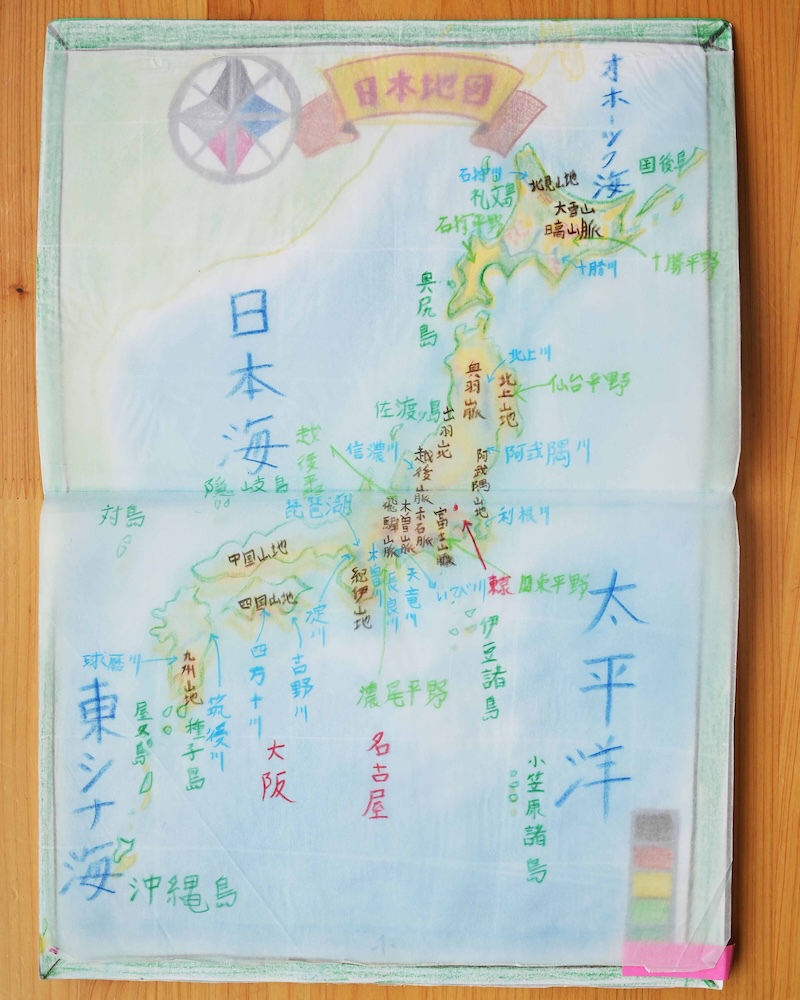 日本地図
オホーツク海
国後島
石狩川
礼文島
北見山地
大雪山
日高山脈
石狩平野
十勝川
十勝平野
奥尻島
日本海
北上川
奥羽山脈
北上山地
仙台平野
佐渡ヶ島
出羽山地
越後平野
信濃川
越後山脈
阿武隈川
阿武隈山地
隠岐島
対島
琵琶湖
飛騨山脈
木曽山脈
赤石山脈
富士山脈
利根川
中国山地
四国山地
紀伊山地
木曽川
長良川
天竜川
いび川
東京
関東平野
太平洋
淀川
吉野川
四万十川
筑後川
球磨川
九州山地
濃尾平野
伊豆諸島
東シナ海
屋久島
種子島
大阪
名古屋
小笠原諸島
沖縄島